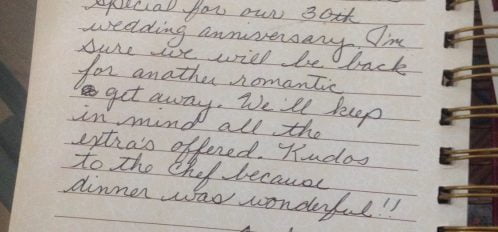 special for our 30th
wedding anniversary. I'm
sure we will be back
for another romantic
get away. We'll keep
in mind all the
extra's offered. Kudos
to the Chef because
dinner was wonderful!!